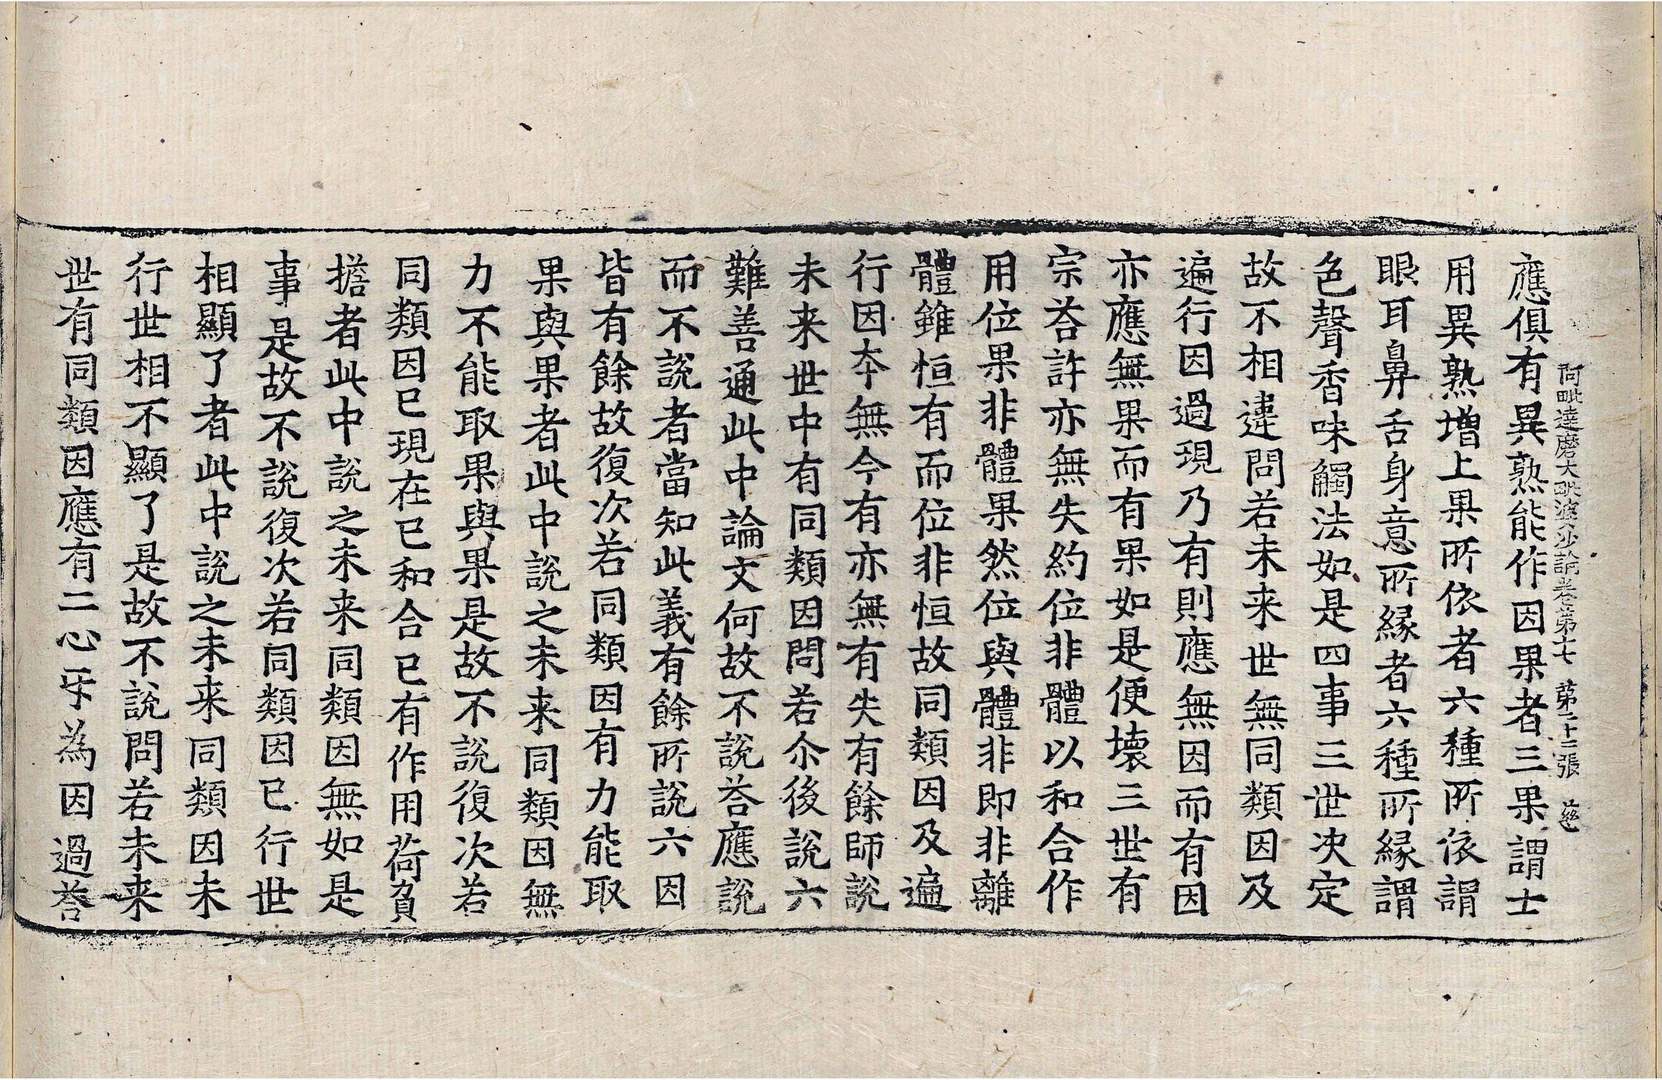 應俱有異熟能作因果者三果謂士
阿毗達磨大毗婆沙論卷第十七 第二十二張 慈
用異熟增上果所依者六種所依謂
眼耳鼻舌身意所緣者六種所緣謂
色聲香味觸法如是四事三世决定
故不相違問若未来世無同類因及
遍行因過現乃有則應無因而有因
亦應無果而有果如是便壞三世有
宗荅許亦無失約位非體以和合作
用位果非體果然位與體非即非離
體雖恒有而位非恒故同類因及遍
行因夲無今有亦無有失有餘師說
未来世中有同類因問若尒後說六
難善通此中論文何故不說荅應說
而不說者當知此義有餘所說六因
皆有餘故復次若同類因有力能取
果與果者此中說之未来同類因無
力不能取果與果是故不說復次若
同類因已現在已和合已有作用荷負
擔者此中說之未来同類因無如是
事是故不說復次若同類因已行世
相顯了者此中說之未来同類因未
行世相不顯了是故不說問若未来
世有同類因應有二心㸦為因過荅